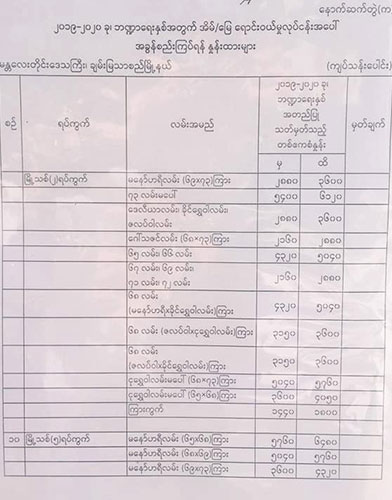 နောက်ဆက်တွဲ(က
၂၀၁၉-၂၀၂၀ ခု၊ ဘဏ္ဍာရေးနှစ်အတွက် အိမ်/မြေ ရောင်းဝယ်မှုလုပ်ငန်းအပေါ်
အခွန်စည်းကြပ်ရန် နှုန်းထားများ
မန္တလေးတိုင်းဒေသကြီး၊ ချမ်းမြသာစည်မြို့နယ် (ကျပ်သန်းပေါင်း)
စဉ် ရပ်ကွက် လမ်းအမည် ၂၀၁၉-၂၀၂၀ ခု၊ ဘဏ္ဍာရေးနှစ် အတည်ပြု သတ်မှတ်သည့် တစ်ဧကစံနှုန်း မှတ်ချက်
မှ ထိ
မြို့သစ်(၂)ရပ်ကွက် မနော်ဟရီလမ်း (၆၉x၇၃)ကြား ၂၈၈၀ ၃၆၀၀
၇၃ လမ်းမပေါ် ၅၄၀၀ ၆၁၂၀
ဒေလီယာလမ်း၊ ခိုင်ရွှေဝါလမ်း၊
ဇလပ်ဝါလမ်း ၂၈၈၀ ၃၆၀၀
ဂေါ်သဇင်လမ်း (၆၈x၇၃)ကြား ၂၁၆၀ ၂၈၈၀
၆၅ လမ်း၊ ၆၆ လမ်း ၄၃၂၀ ၅၀၄၀
၆၇ လမ်း၊ ၆၉ လမ်း၊
၇၁ လမ်း၊ ၇၂ လမ်း ၂၁၆၀ ၂၈၈၀
၆၈ လမ်း
(မနော်ဟရီxခိုင်ရွှေဝါလမ်း)ကြား ၄၃၂၀ ၅၀၄၀
၆၈ လမ်း (ဇလပ်ဝါxငုရွှေဝါလမ်း)ကြား ၃၁၅၀ ၃၆၀၀
၆၈ လမ်း
(ဇလပ်ဝါxခိုင်ရွှေဝါလမ်း)ကြား ၃၁၅၀ ၃၆၀၀
ငုရွှေဝါလမ်းမပေါ် (၆၈x၇၃)ကြား ၅၀၄၀ ၅၇၆၀
ငုရွှေဝါလမ်းမပေါ် (၆၅x၆၈)ကြား ၃၆၀၀ ၄၀၅၀
ကြားကွက် ၁၄၄၀ ၁၈၀၀
၁၀ မြို့သစ်(၅)ရပ်ကွက် မနော်ဟရီလမ်း (၆၅x၆၈)ကြား ၅၇၆၀ ၆၄၈၀
မနော်ဟရီလမ်း (၆၈x၆၉)ကြား ၅၀၄၀ ၅၇၆၀
မနော်ဟရီလမ်း (၆၉x၇၃)ကြား ၃၆၀၀ ၄၃၂၀